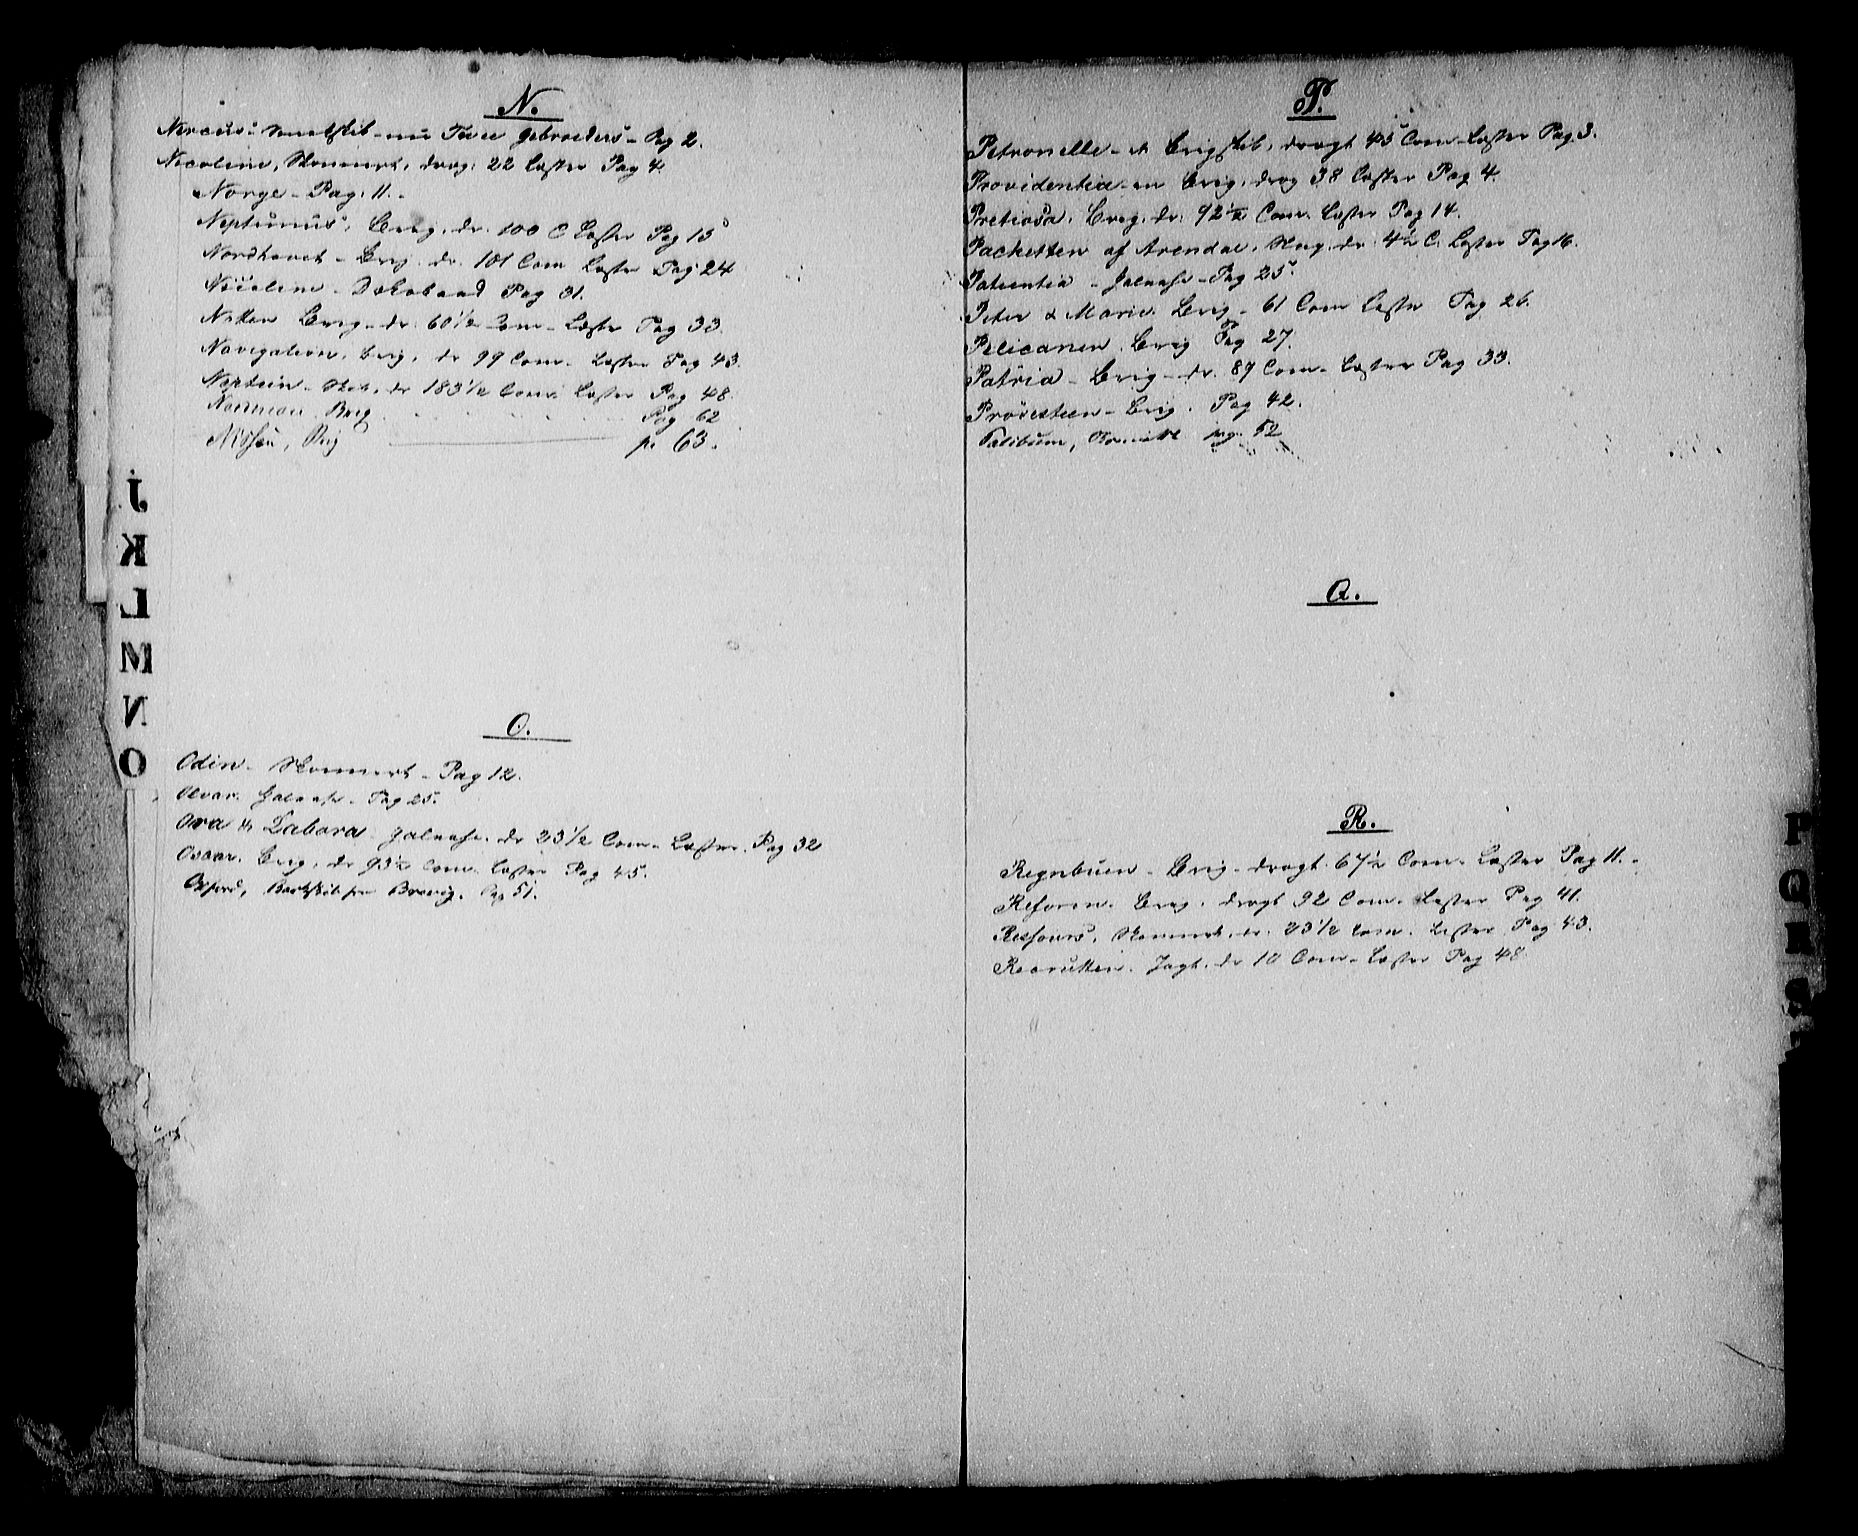 N.
Nereus - Smakskib - nu Twee gebroeders - Pag 2.
Nicoline, Skonnert, drag: 22 Læster Pag 4.
Norge - Pag: 11. -
Neptunus, Brig, dr. 100 C Læster Pag 15
Nordhavet - Brig. dr. 101 Com Læster Pag 24
Nicoline - Pag 31.
Nikken Brig - dr. 60 1/2 Com - Læster Pag 33.
Navigation, brig, dr 99 Com - Læster Pag 43.
Neptun - Skib, dr 183 1/2 Com. Læster Pag 48.
Norman Brig Pag 62
Nissen, Brig p. 63.
O.
Odin - Skonnert - Pag 12.
Galease - Pag 25.
Ora & Labora - Galease. dr 23 1/2 Com - Læster. Pag 32
Oscar. Brig. dr 93 1/2 Com. Læster Pag 45.
Oxford, Barkskib fra Brevig. Pag 51.
J
K
L
M
N
O
P.
Petronelle - et Brigskib, dragt 45 Com - Læster Pag 3.
Providentia - en Brig, drag 38 Læster Pag 4.
Pretiosa. Brig. dr. 92 1/2 Com. Læster Pag 14.
Packetten af Arendal, Slup, dr. 4 1/2 C. Læster Pag 16.
Patientia - Galease - Pag 25.
Peter & Marie. Brig - 61 Com Læster Pag 26.
Pelicanen. Brig Pag 27.
Patria - Brig - dr. 89 Com - Læster Pag 33.
Prövesteen - Brig. Pag 42.
pag. 52
Q.
R.
Regnbuen - Brig - dragt. 67 1/2 Com - Læster Pag 11. -
Reform. Brig. dragt 92 Com. Læster Pag 41.
Ressours, Skonnert, dr. 23 1/2 Com. Læster Pag 43.
Recrutten. Jagt. dr 10 Com - Læster Pag 48
P
Q
R
S